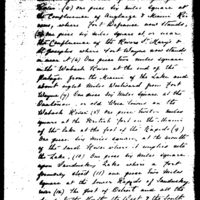 River. (6) One piece six miles square at
the Confluence of Auglaize & Miami Ri-
vers, where Fort Defiance now stands,
(7) One piece six miles square at or near
the Confluence of the Rivers St. Mary's &
St. Josephs where Fort Wayne now stands or
near it (8) One piece two miles square
on the Wabash River at the end of the
Portage from the Miami of the Lake and
about eight miles Westward from Fort
Wayne (9) One piece six miles square at the
Ouiatanon, or old Wea towns on the
Wabash River (10) One piece twelve miles
square at the British fort on the Miami
of the Lake at the foot of the Rapids (11)
One piece six miles square, at the mouth
of the said River where it empties into
the Lake, (12) One piece six miles square
upon Sandusky Lake where a fort
formerly stood (13) One piece two miles
square at the lower Rapids of Sandusky
River (14) The post of Detroit and all the
land to the North, the West & the South